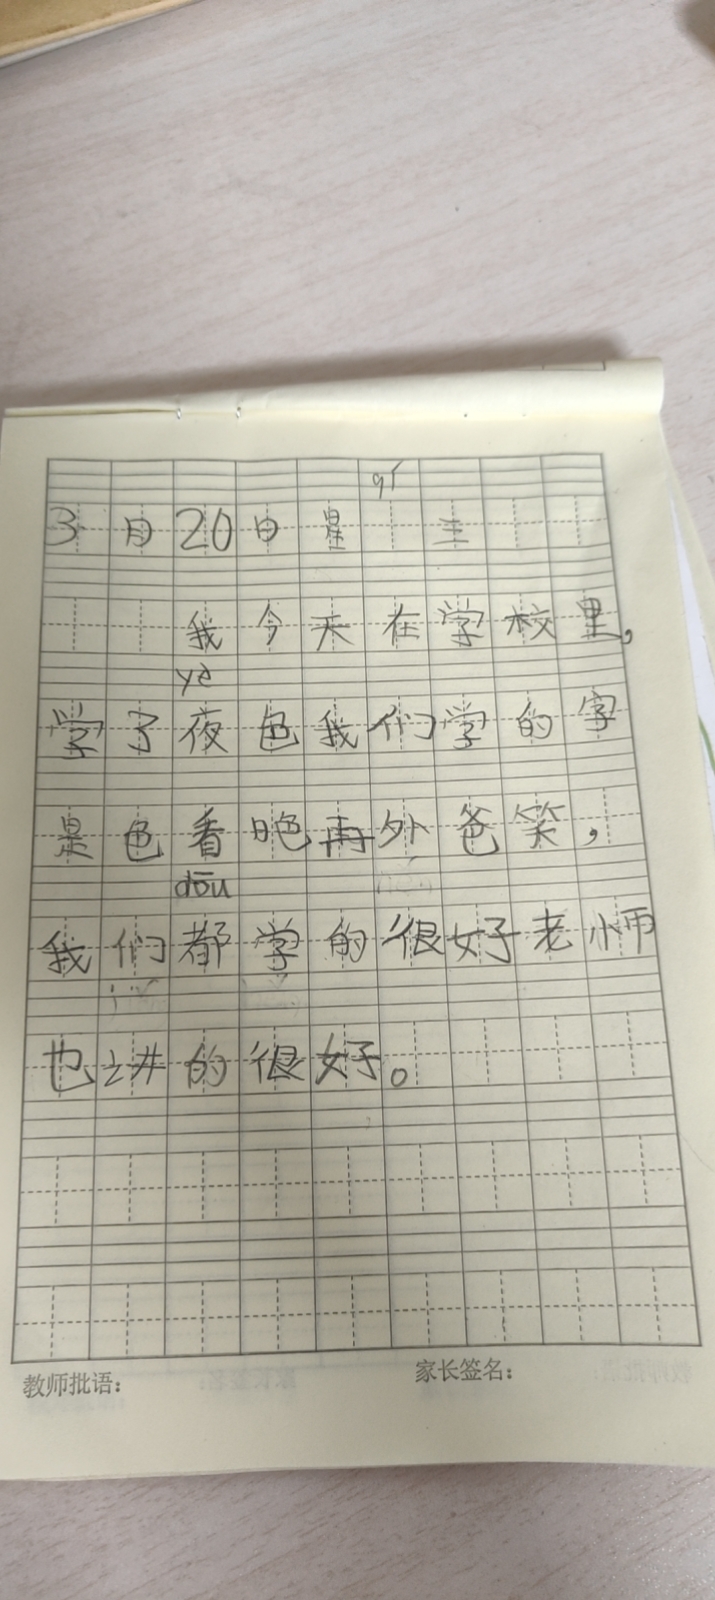 qī
3月20日星 三
我今天在学校里，
yè
学了夜色我们学的字
是色看晚再外爸笑，
dōu
我们都学的很好老师
也讲的很好。
教师批语：
家长签名：